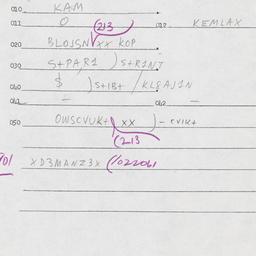 010 KAM
011 O (213 012 KEMLAX
020 BLOJSN xx KOP
030 S+PAR1 )S+R1NJ
040 $ )S+1B+ /KLGAJ1N
041 - 042 -
050 OWSCVUK+ xx )- CVIK+
(213
701 XD3MANZ3X (/022061